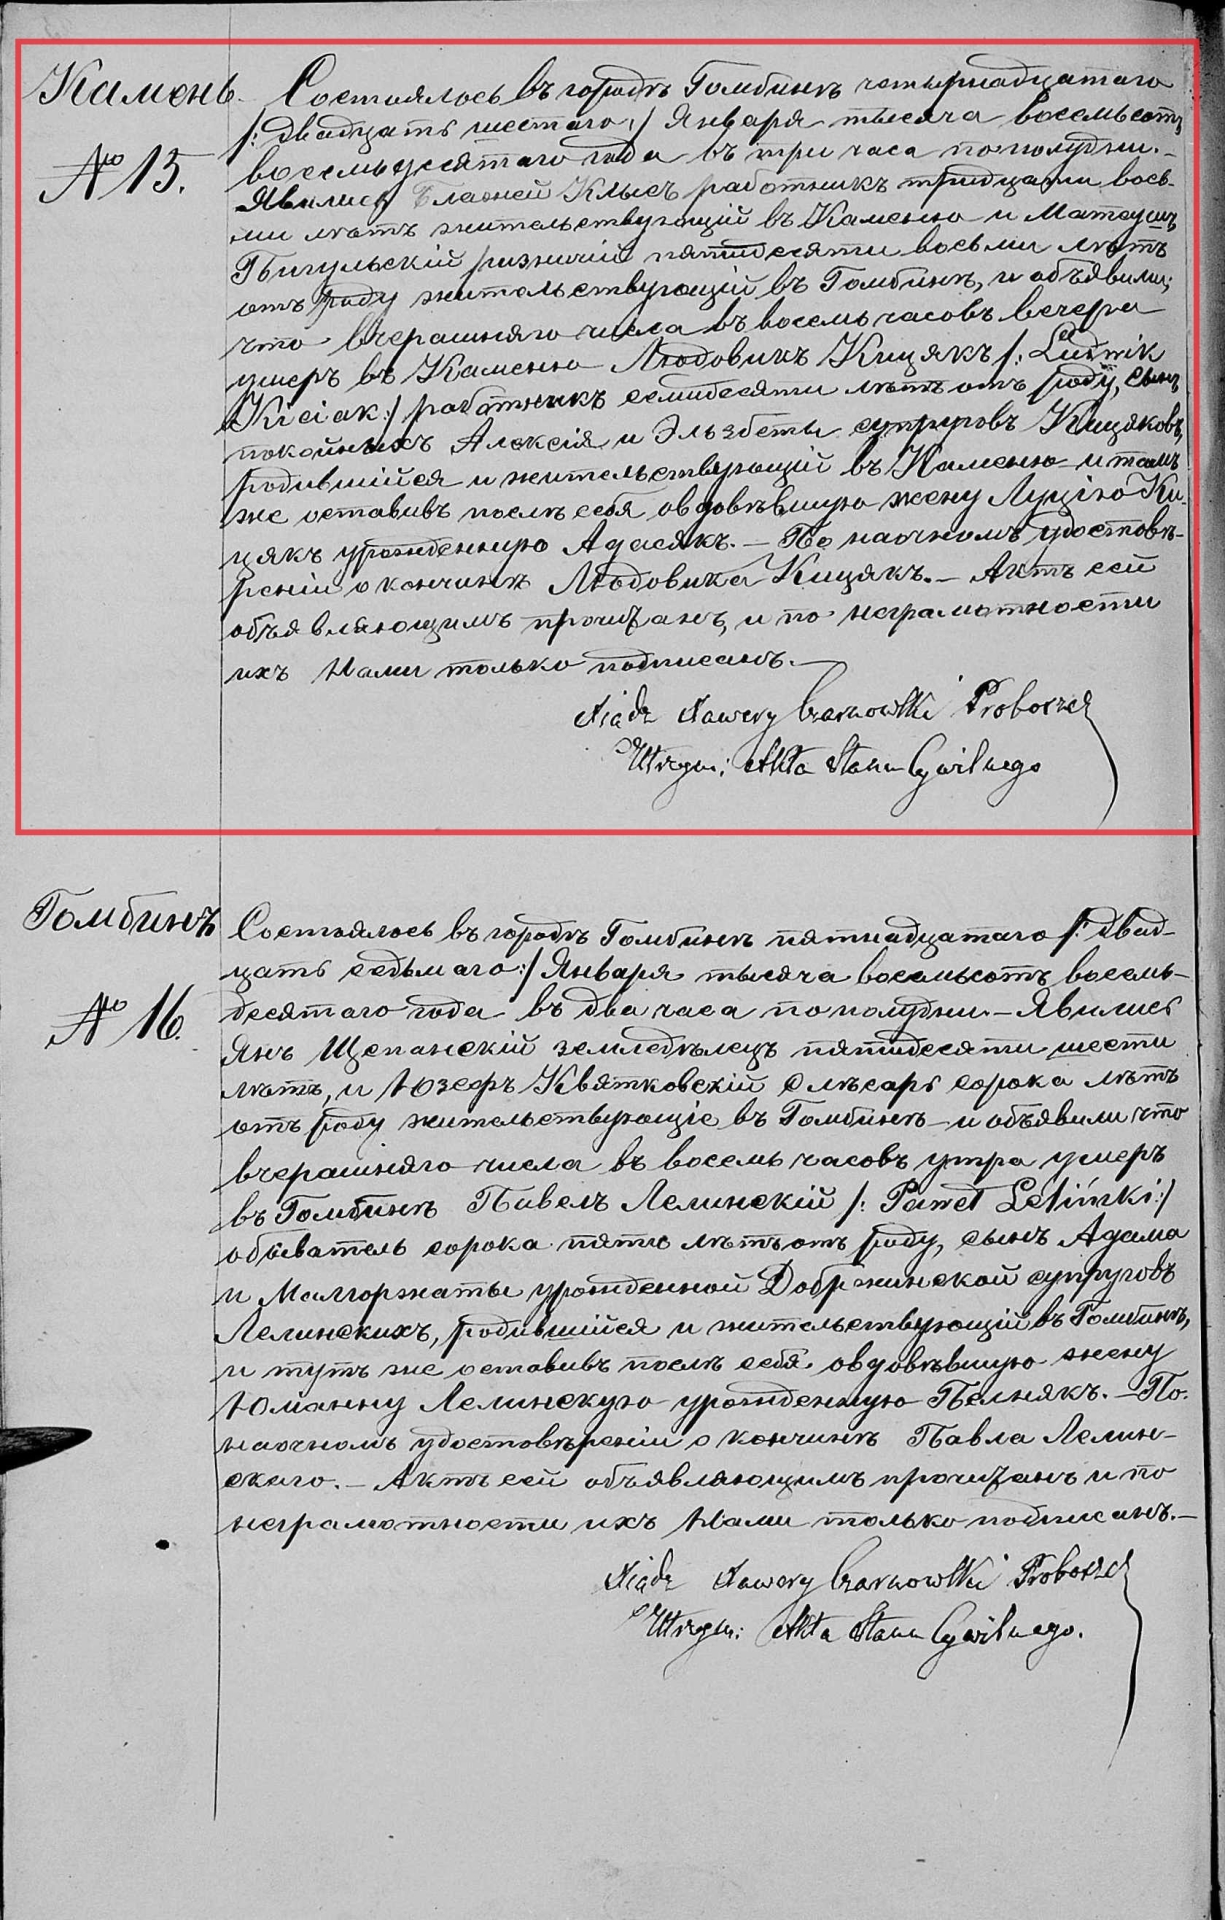 Камень.
№ 15.
Состоялось въ городѣ Гомбинѣ четырнадцатаго
/: двадцать шестаго :/ Января тысяча восемьсотъ
восемьдесятаго года въ три часа пополудни.-
Явились Блажей Клысъ работникъ тридцати вось-
ми лѣтъ жительствующій въ Каменю и Матеушъ
Гигульскій рѣзничій пятидесяти восьми лѣтъ
отъ роду жительствующій въ Гомбинѣ, и объявили;
что вчерашняго числа въ восемь часовъ вечера
умеръ въ Каменю Людовикъ Кицякъ /: Ludwik
Kiciak :/ работникъ семидесяти лѣтъ отъ роду, сынъ
покойныхъ Алексія и Эльзбеты супруговъ Кицяковъ,
родившійся и жительствующій въ Каменю и тамъ
же оставивъ послѣ себя овдовѣвшую жену Луцію Ки-
цякъ урожденную Адасякъ. — По наочномъ удостовѣ-
реніи о кончинѣ Людовика Кицякъ. — Актъ сей
объявляющимъ прочитанъ, и по неграмотности
ихъ Нами только подписанъ. —
Xiądz Xawery Czarnowski Proboszcz
Utrzym: Akta Stanu Cywilnego
Гомбинъ
№ 16.
Состоялось въ городѣ Гомбинѣ пятнадцатаго /: двад-
цать седьмаго :/ Января тысяча восемьсотъ восемь-
десятаго года въ два часа пополудни. — Явились
Янъ Щепанскій земледѣлецъ пятидесяти шести
лѣтъ, и Юзефъ Квятковскій слѣсарь сорока лѣтъ
отъ роду жительствующіе въ Гомбинѣ и объявили что
вчерашняго числа въ восемь часовъ утра умеръ
въ Гомбинѣ Павелъ Лелинскій /: Paweł Leliński :/
обыватель сорока пяти лѣтъ отъ роду, сынъ Адама
и Малгоржаты урожденной Добржинской супруговъ
Лелинскихъ, родившійся и жительствующій въ Гомбинѣ,
и тутъ же оставивъ послѣ себя овдовѣвшую жену
Юліанну Лелинскую урожденную Пельнякъ. — По
наочномъ удостовѣреніи о кончинѣ Павла Лелин-
скаго. — Актъ сей объявляющимъ прочитанъ и по
неграмотности ихъ Нами только подписанъ. —
Xiądz Xawery Czarnowski Proboszcz
Utrzym: Akta Stanu Cywilnego.